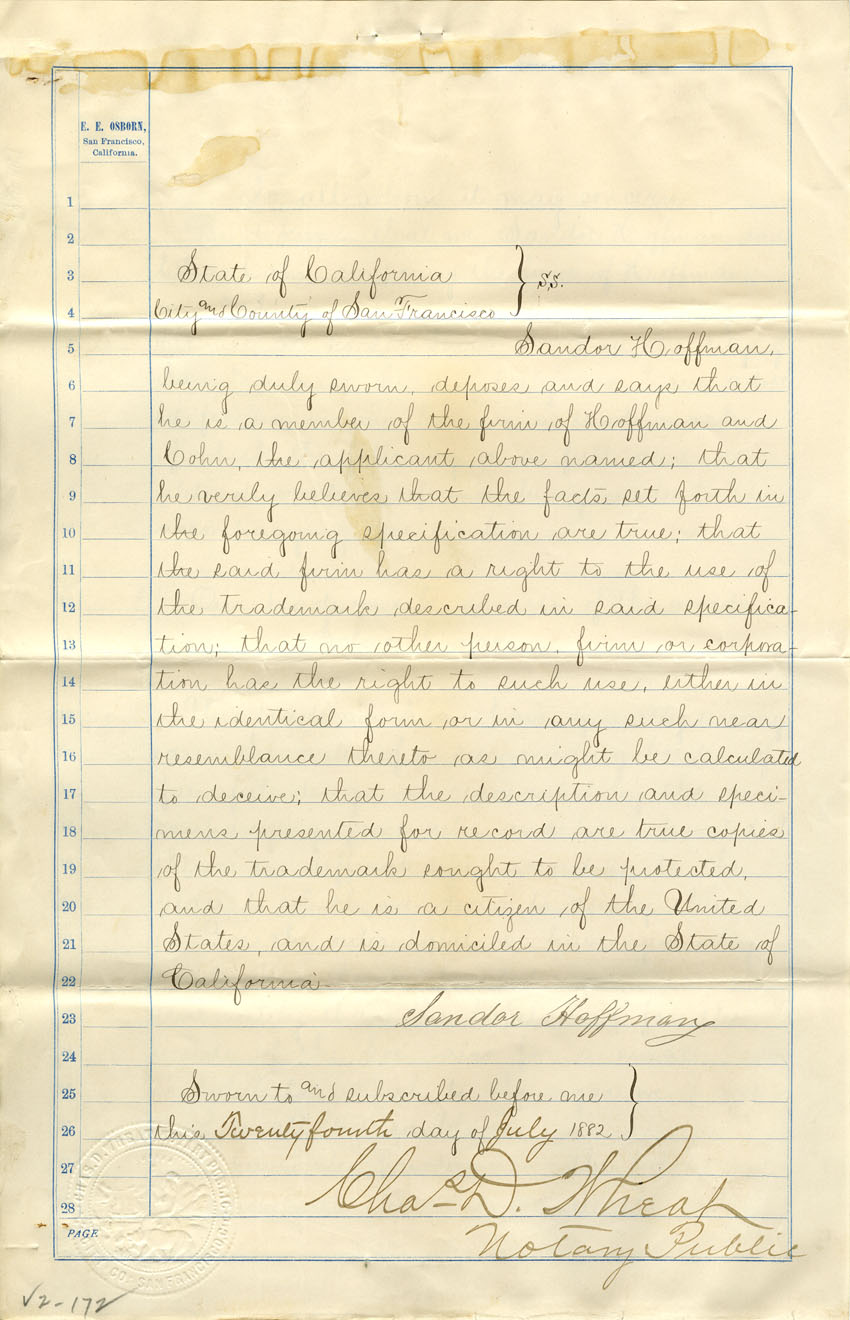 E. E. OSBORN,
San Francisco,
California.
1
2
3 State of California } S.S.
4 City and County of San Francisco
5 Sandor Hoffman,
6 being duly sworn, deposes and says that
7 he is a member of the firm of Hoffman and
8 Cohn, the applicant above named; that
9 he verily believes that the facts set forth in
10 the foregoing specification are true; that
11 the said firm has a right to the use of
12 the trademark described in said specifica-
13 tion; that no other person, firm or corpora-
14 tion has the right to such use, either in
15 the identical form or in any such near
16 resemblance thereto as might be calculated
17 to deceive; that the description and speci-
18 mens presented for record are true copies
19 of the trademark sought to be protected,
20 and that he is a citizen of the United
21 States, and is domiciled in the State of
22 California
23 Sandor Hoffman
24
25 Sworn to and subscribed before me }
26 this Twenty fourth day of July 1882
27
28 Chas. D. Wheat
Notary Public
PAGE
V2-172